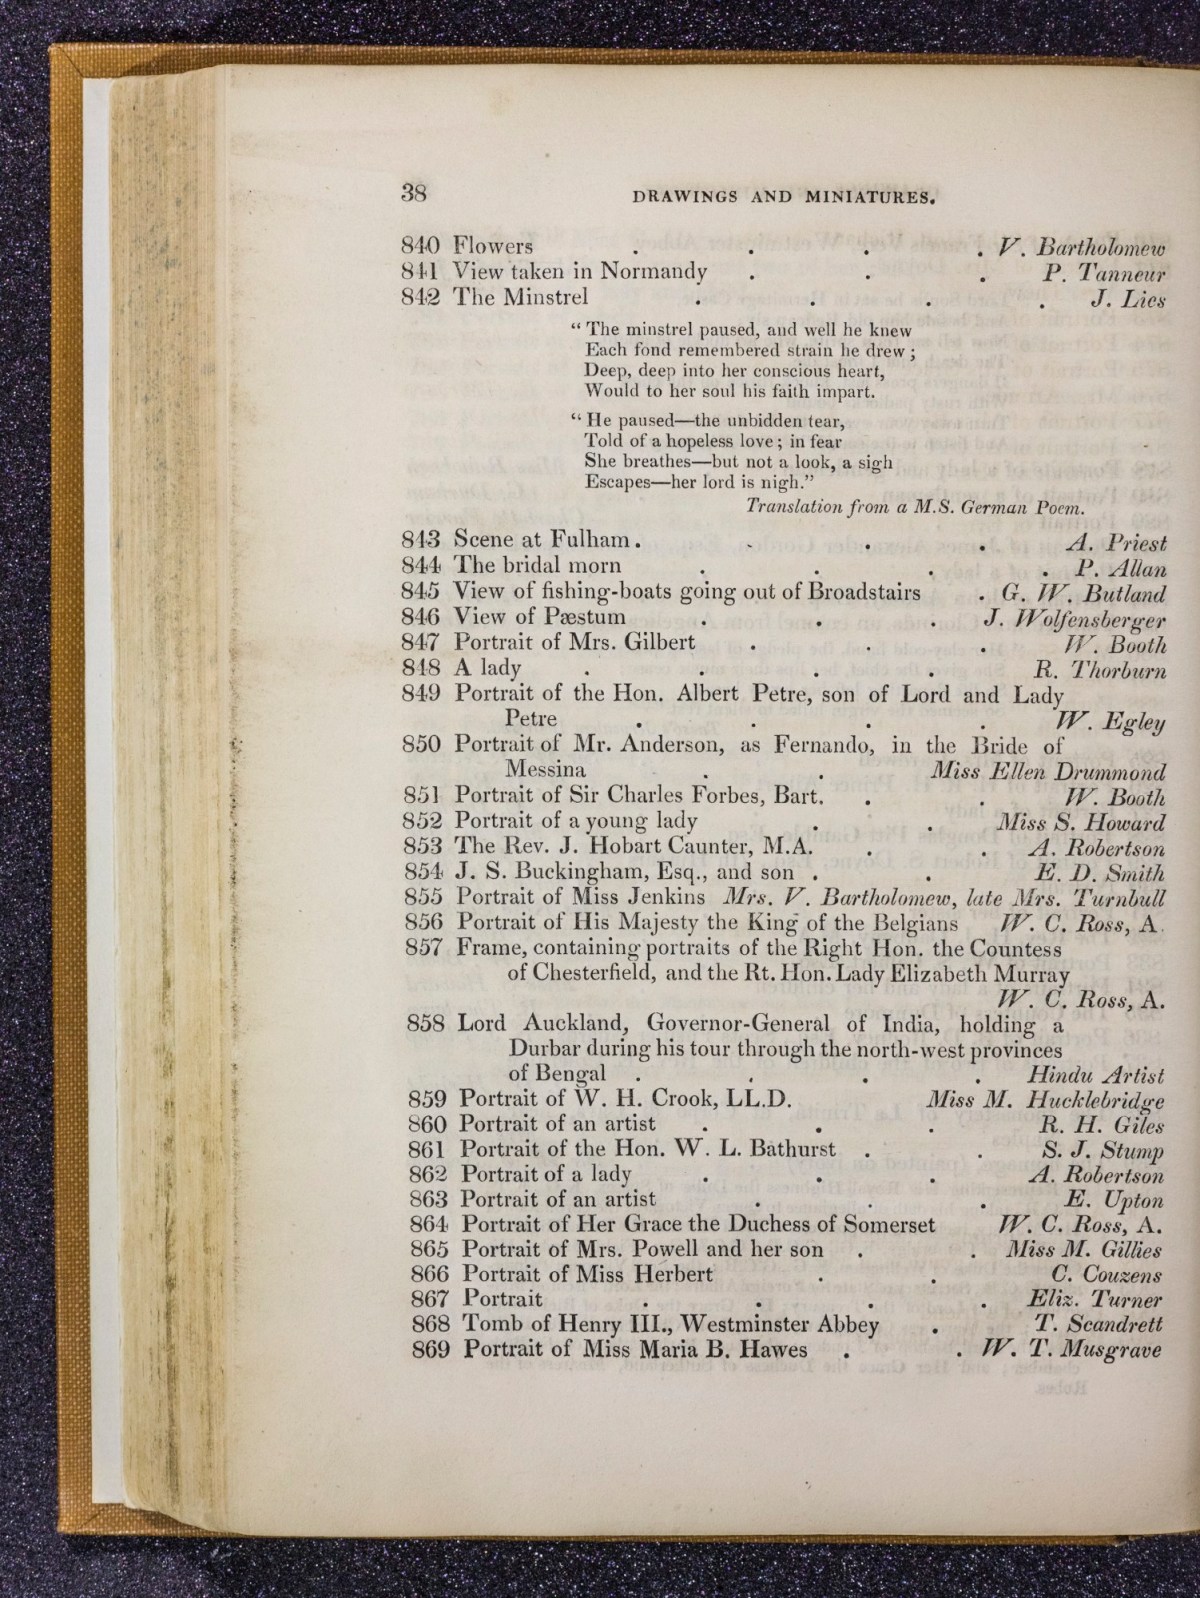 38 DRAWINGS AND MINIATURES.
840 Flowers . . . . V. Bartholomew
841 View taken in Normandy . . . P. Tanneur
842 The Minstrel . . . . J. Lies
“ The minstrel paused, and well he knew
Each fond remembered strain he drew ;
Deep, deep into her conscious heart,
Would to her soul his faith impart.
“ He paused—the unbidden tear,
Told of a hopeless love ; in fear
She breathes—but not a look, a sigh
Escapes—her lord is nigh.”
Translation from a M.S. German Poem.
843 Scene at Fulham . . . . A. Priest
844 The bridal morn . . . . P. Allan
845 View of fishing-boats going out of Broadstairs . G. W. Butland
846 View of Pæstum . . . J. Wolfensberger
847 Portrait of Mrs. Gilbert . . . W. Booth
848 A lady . . . . R. Thorburn
849 Portrait of the Hon. Albert Petre, son of Lord and Lady
Petre . . . . W. Egley
850 Portrait of Mr. Anderson, as Fernando, in the Bride of
Messina . . Miss Ellen Drummond
851 Portrait of Sir Charles Forbes, Bart. . . W. Booth
852 Portrait of a young lady . . Miss S. Howard
853 The Rev. J. Hobart Caunter, M.A. . . A. Robertson
854 J. S. Buckingham, Esq., and son . . E. D. Smith
855 Portrait of Miss Jenkins Mrs. V. Bartholomew, late Mrs. Turnbull
856 Portrait of His Majesty the King of the Belgians W. C. Ross, A.
857 Frame, containing portraits of the Right Hon. the Countess
of Chesterfield, and the Rt. Hon. Lady Elizabeth Murray
W. C. Ross, A.
858 Lord Auckland, Governor-General of India, holding a
Durbar during his tour through the north-west provinces
of Bengal . . . . Hindu Artist
859 Portrait of W. H. Crook, LL.D. Miss M. Hucklebridge
860 Portrait of an artist . . . R. H. Giles
861 Portrait of the Hon. W. L. Bathurst . . S. J. Stump
862 Portrait of a lady . . . A. Robertson
863 Portrait of an artist . . . E. Upton
864 Portrait of Her Grace the Duchess of Somerset W. C. Ross, A.
865 Portrait of Mrs. Powell and her son . . Miss M. Gillies
866 Portrait of Miss Herbert . . C. Couzens
867 Portrait . . . . Eliz. Turner
868 Tomb of Henry III., Westminster Abbey . T. Scandrett
869 Portrait of Miss Maria B. Hawes . . W. T. Musgrave